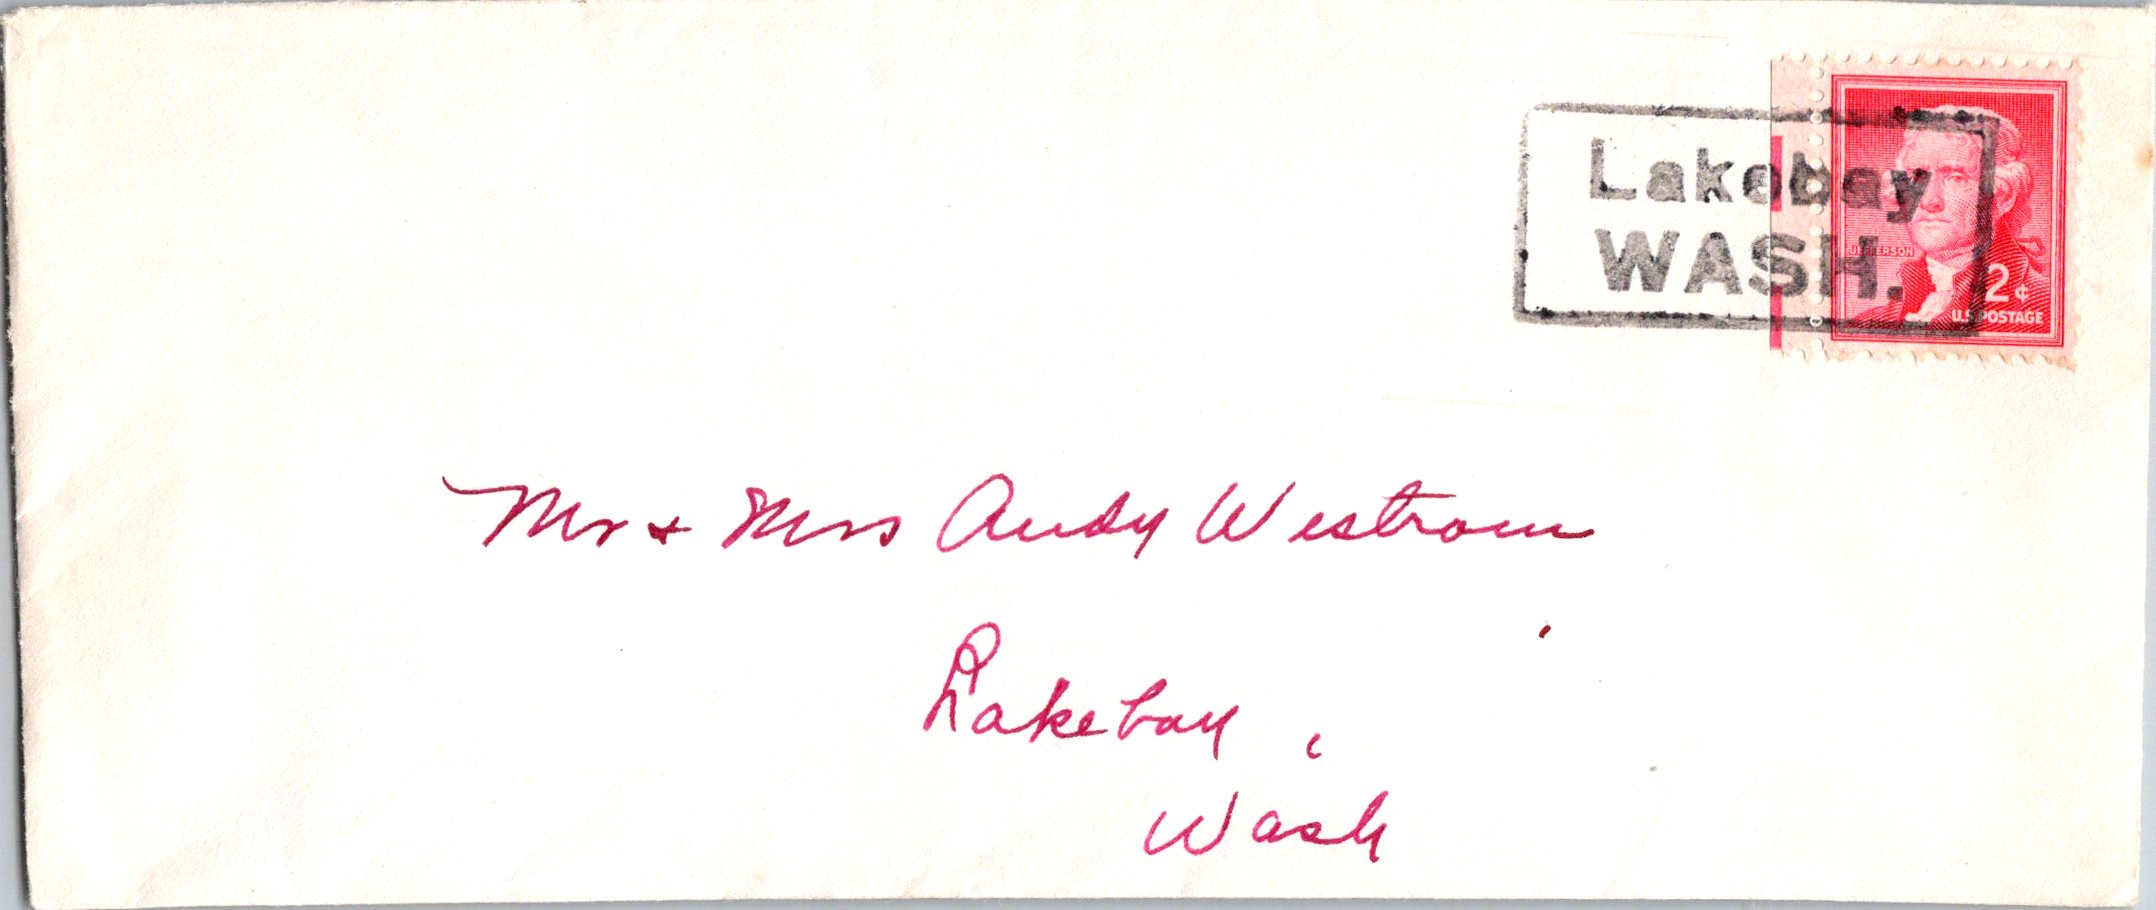 Lakebay
WASH.
JEFFERSON
2¢
U.S. POSTAGE
Mr & Mrs Andy Westrom
Lakebay,
Wash